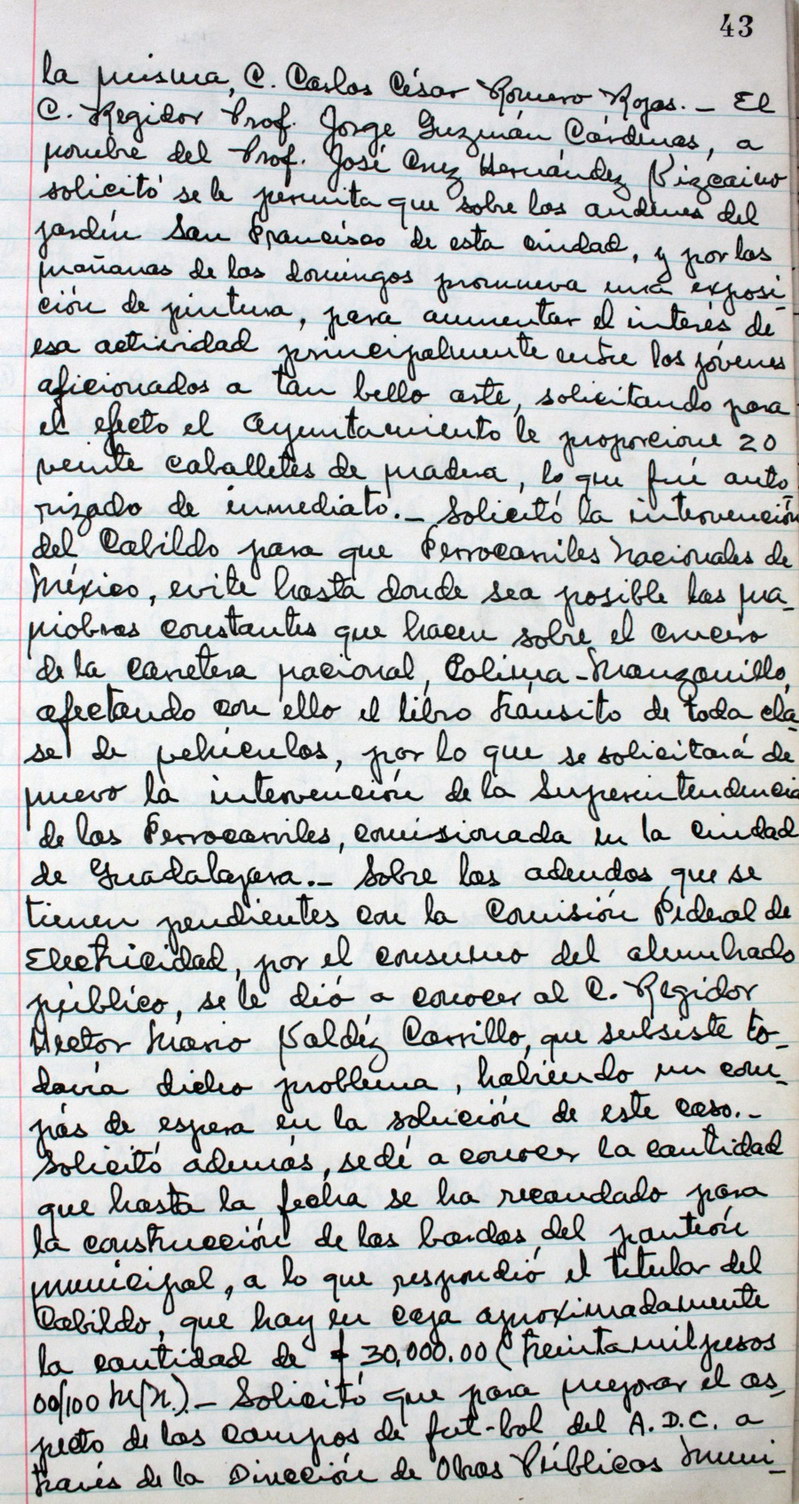 43
la misma, C. Carlos César Romero Rojas.- El
C. Regidor Prof. Jorge Guzmán Cárdenas, a
nombre del Prof. José Cruz Hernández Vizcaíno
solicitó se le permita que sobre los andenes del
jardín San Francisco de esta ciudad, y por las
mañanas de los domingos promueva una exposi-
ción de pintura, para aumentar el interés de
esa actividad principalmente entre los jóvenes
aficionados a tan bello arte, solicitando para
el efecto el Ayuntamiento le proporcione 20
veinte caballetes de madera, lo que fué auto-
rizado de inmediato.- Solicitó la intervención
del Cabildo para que Ferrocarriles Nacionales de
México, evite hasta donde sea posible las ma-
niobras constantes que hacen sobre el crucero
de la carretera nacional, Colima-Manzanillo,
afectando con ello el libro tránsito de toda cla-
se de vehículos, por lo que se solicitará de
nuevo la intervención de la Superintendencia
de los Ferrocarriles, comisionada en la ciudad
de Guadalajara.- Sobre los adeudos que se
tienen pendientes con la Comisión Federal de
Electricidad, por el consumo del alumbrado
público, se le dió a conocer al C. Regidor
Héctor Mario Valdéz Carrillo, que subsiste to-
davía dicho problema, habiendo un com-
pás de espera en la solución de este caso.-
Solicitó además, se dé a conocer la cantidad
que hasta la fecha se ha recaudado para
la construcción de las bardas del panteón
municipal, a lo que respondió el titular del
Cabildo, que hay en caja aproximadamente
la cantidad de $ 30,000.00 (treinta mil pesos
00/100 M/N.).- Solicitó que para mejorar el as-
pecto de los campos de fut-bol del A.D.C. a
través de la Dirección de Obras Públicas Muni-